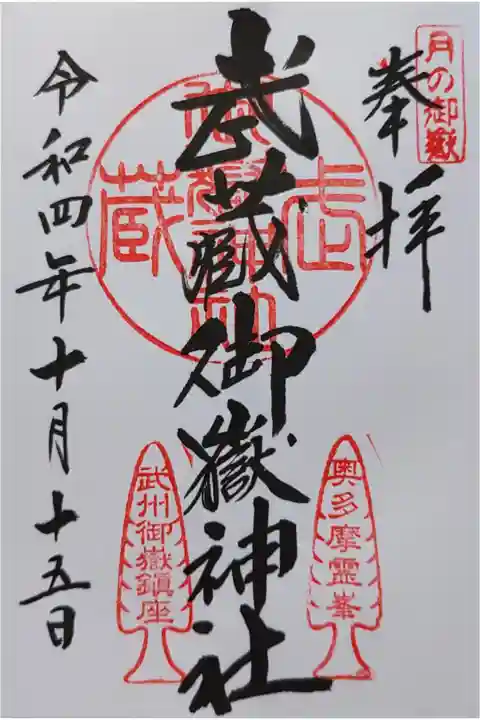 月の御嶽
奉拝
武蔵御嶽神社
奥多摩霊峯
武州御嶽鎮座
令和四年十月十五日